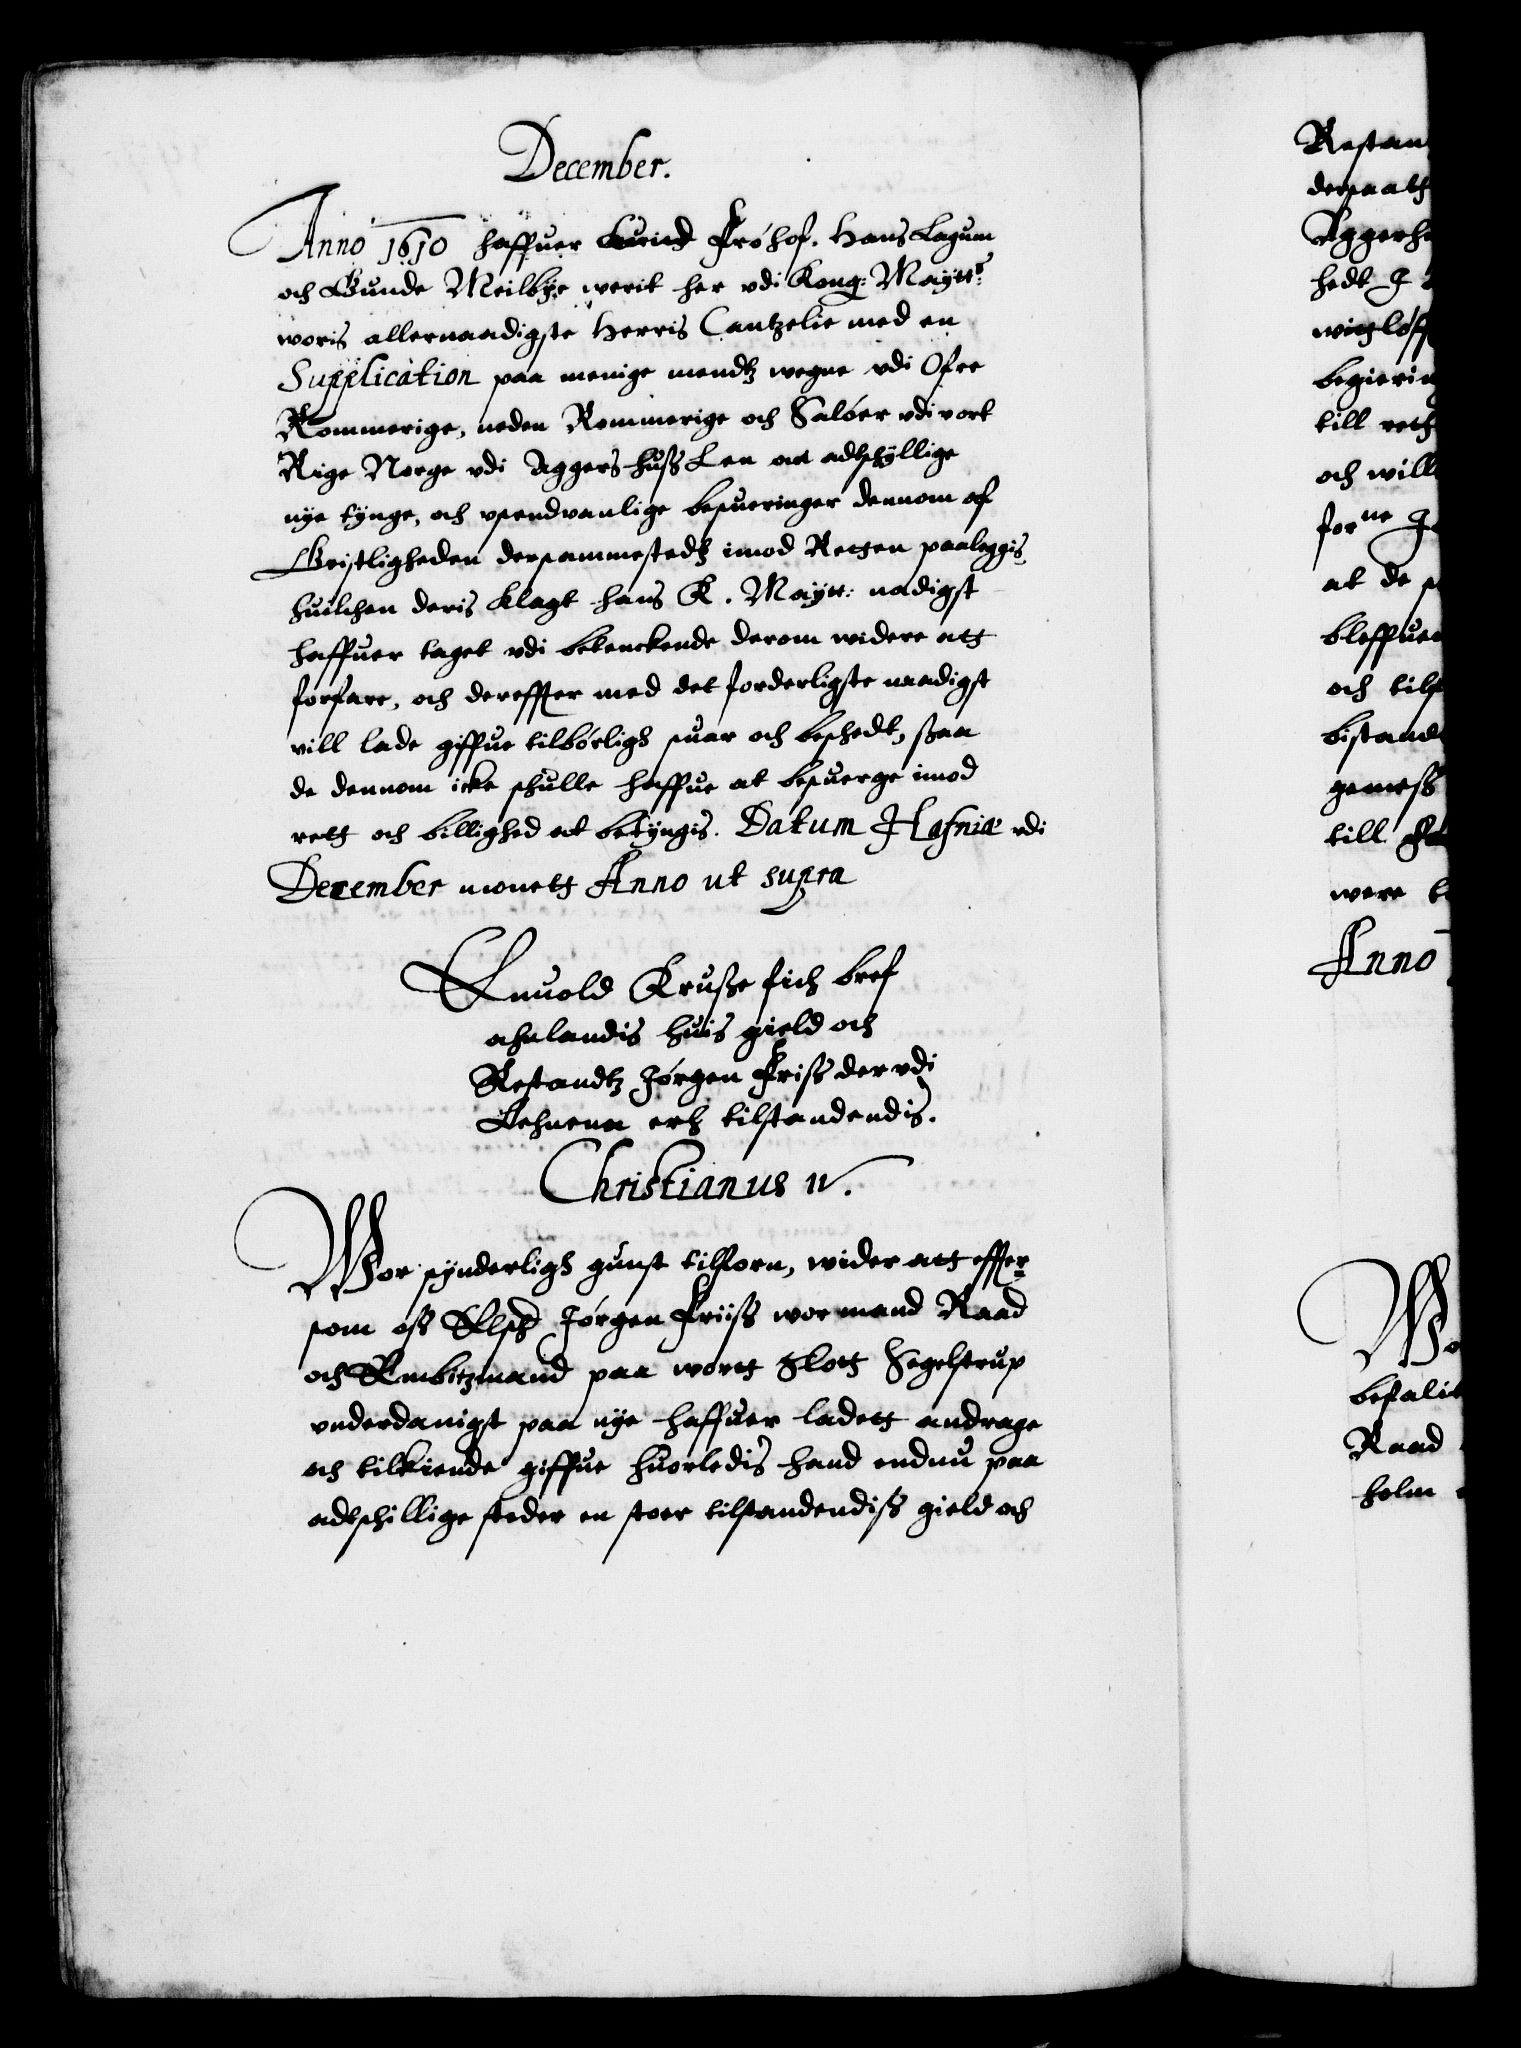 December.
Anno 1610 haffuer Hans Lagum
och Gunde Meilbye werit her vdi Kong: Maytt:
woris allernaadigste Herris Cantzelie med en
Supplication paa menige mendtz wegne vdi Ofre
Rommerige, neden Rommerige och Saløer vdi vort
Rige Norge vdi Aggershuss Len att adtschyllige
nye tynge, och vsendvanlige besueringer dennom af
Geistligheden dersammestedtz imod Retten paaleggis
huilchen deris klagt hans K. Maytt: nadigst
haffuer taget vdi betenckende derom widere att
forfare, och dereffter med det forderligste naadigst
vill lade giffue tilbørligh suar och beschedt, ssaa
de dennom icke schulle haffue at besuerge imod
rett och billighed at betyngis. Datum Hafniæ vdi
December monett Anno ut supra
Enuold Krusse fich bref
anlandis huis gield och
Restandtz Jørgen Friss der vdi
Lehnenn erh tilstandendis.
Christianus IV.
Wor synderligh gunst tilforn, wider att effter¬
som oss Elsch Jørgen Friiss wor mand Raad
och Embitzmand paa wortt Slott Segelstrup
vnderdanigst paa nye haffuer ladett andrage
och tilkiende giffue huorledis hand endnu paa
adtschillige steder en stoer tilstandendiss gield och
Restan
Aggerh
hedt J
begierin
till reth
och will
forne J
at de
och tilf
bistand
gemess
till
were
Anno
Wo
befalit
Raad
holm